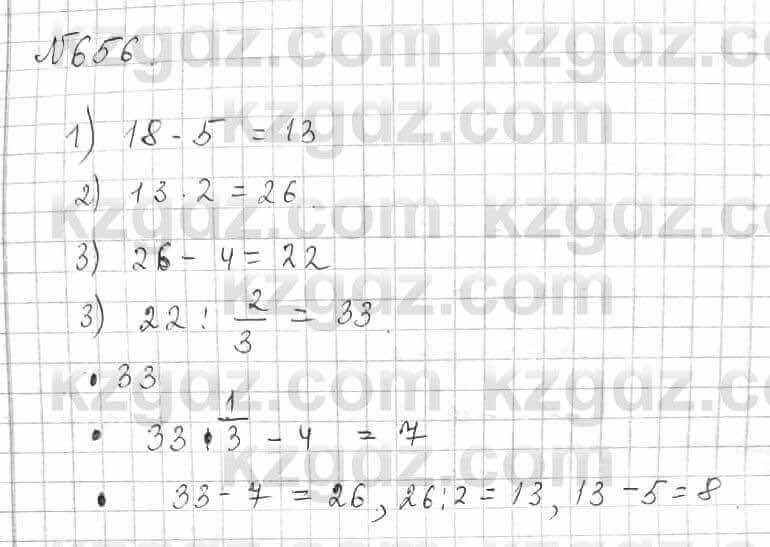 №656.
1) 18 - 5 = 13
2) 13 · 2 = 26.
3) 26 - 4 = 22
3) 22 : 2/3 = 33.
• 33
• 33 · 1/3 - 4 = 7
• 33 - 7 = 26, 26 : 2 = 13, 13 - 5 = 8.
kzgdz.com kzgdz.com
kzgdz.com
kzgdz.com kzgdz.com
kzgdz.com
kzgdz.com kzgdz.com
kzgdz.com